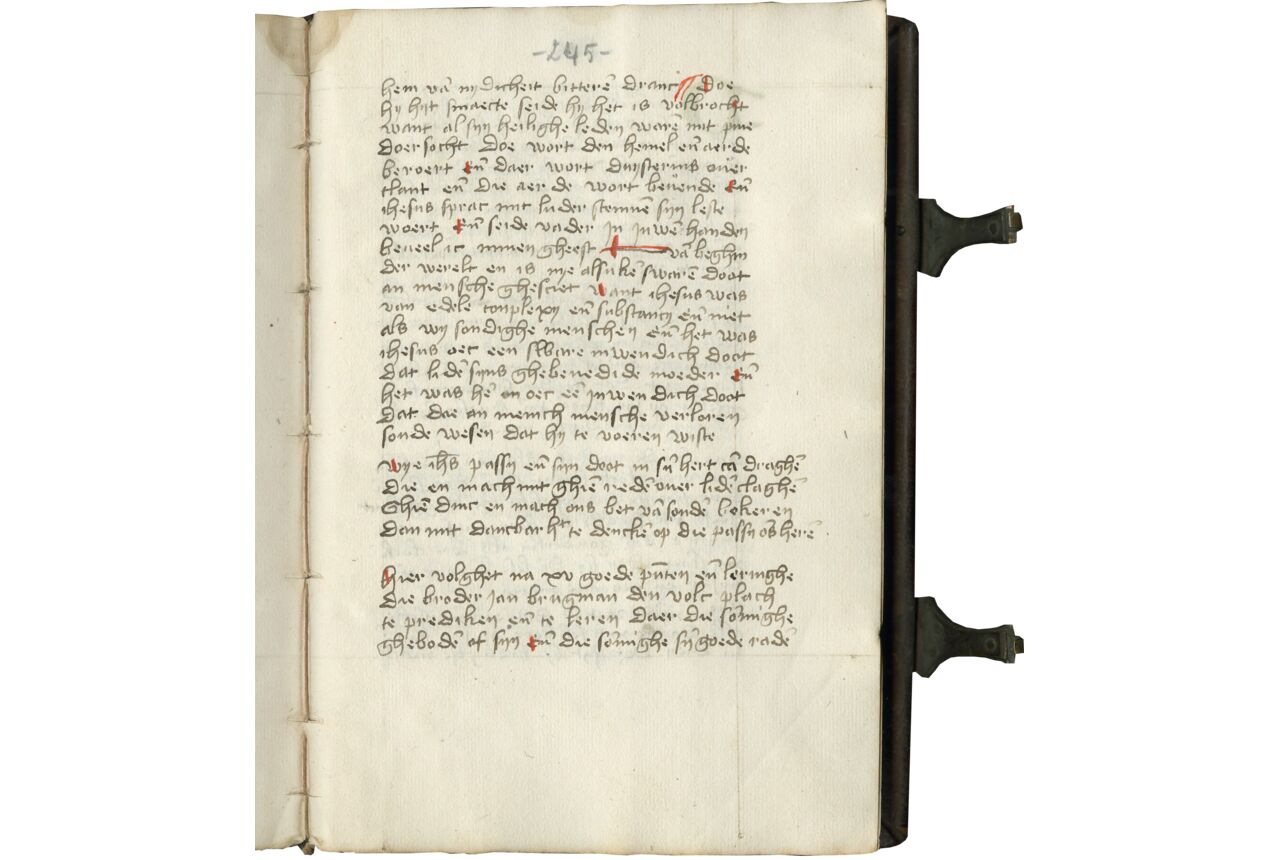 -245-
hem vā nydicheit bitterē dranc Doe
hy hyt smaecte seide hy het is volbrocht
want al syn heilighe leden warē mit pine
doersocht Doe wort den hemel eñ aerde
beroert Eñ daer wort duysternis ouer
tlant eñ die aerde wort beuende Eñ
ihesus sprac mit luder stemmē syn leste
woert Eñ seide vader jn juwē handen
beueel ic minen gheest vā beghin
der werelt en is nye alsulkē swarē doot
an mensche ghesciet Want ihesus was
van edele conplexy eñ substancy eñ niet
als wy sondighe menschen eñ het was
ihesus oec een sware inwendich doot
dat lidē syns ghebenedide moeder Eñ
het was hē oec eē jnwendich doot
dat doe an menich mensche verloren
sonde wesen dat hy te voeren wiste
Wye ihs passy eñ syn doot in sȳ hert cā draghē
die en mach mit ghiē redē ouer lidē claghē
Ghiē dinc en mach ons bet vā sondē bekeren
dan mit dancbarht te denckē op die passy os herē
Hier volghet na xv goede pūten eñ leringhe
die broder jan brugman den volc plach
te prediken eñ te leren daer die sōmighe
ghebodē of syn Eñ die sōmighe sȳ goede radē